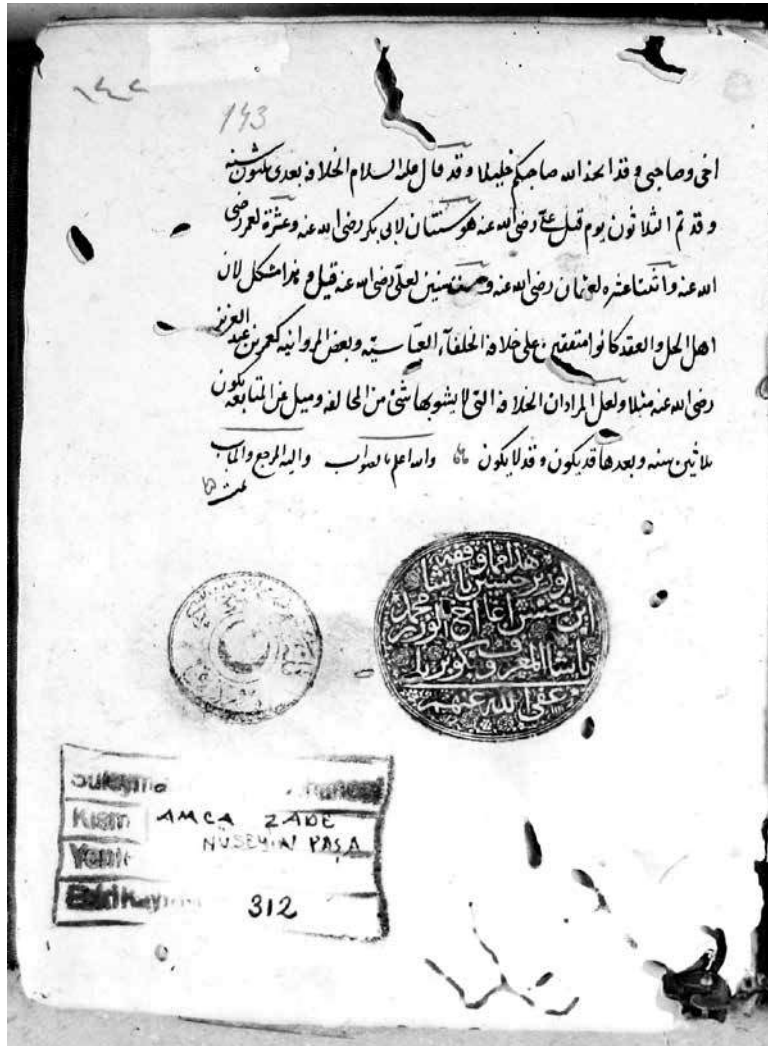 ١٤٢
143
اخى وصاحبى وقد اتخذ الله صاحبكم خليلا وقد قال عليه السلام الخلافة بعدى ثلثون سنة
وقد تم الثلاثون يوم قتل على رضى الله عنه هو سنتان لابى بكر رضى الله عنه وعشرة لعمر رضى
الله عنه واثنتا عشره لعثمان رضى الله عنه وست سنين لعلى رضى الله عنه قيل وهذا مشكل لان
اهل الحل والعقد كانوا متفقين على خلافة الخلفآء العباسيه وبعض المروانيه كعمر بن عبد العزيز
رضى الله عنه مثلا ولعل المراد ان الخلافة التى لا يشوبها شئ من المخالفه وميل عن المتابعه يكون
ثلاثين سنه وبعدها قد يكون وقد لا يكون والله اعلم بالصواب واليه المرجع والمآب
تمت
هذا مما وقفه
الوزير حسين پاشا
ابن حسن اغا اخ الوزير محمد
پاشا المعروف بكوپريلى
عفى الله عنهم
Süleyma
Kısmı AMCA ZADE
HÜSEYİN PAŞA
Yeni
Eski Kayı 312